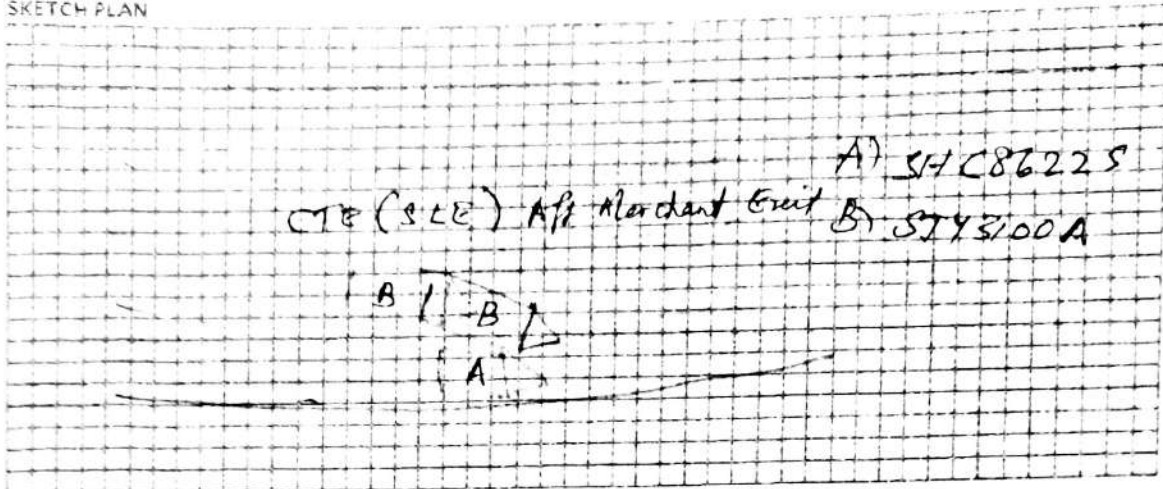 SKETCH PLAN
A) SHC8622S
CTE (SLE) Aft Merchant Exit B) SJY3100A
B B
A